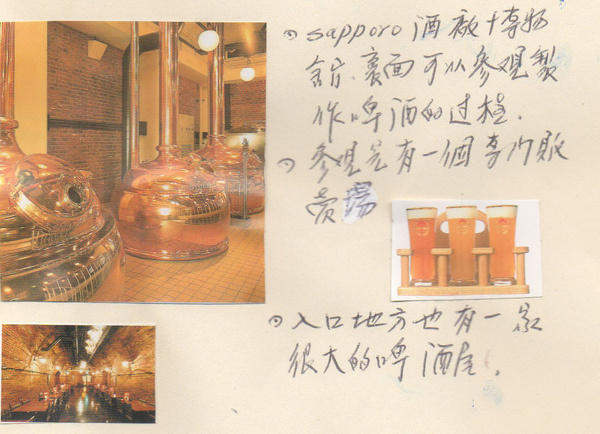 sapporo 酒廠+博物
館.裏面可以參观製
作啤酒的过程.
參观完有一個專门販
卖場
入口地方也有一家
很大的啤酒屋.